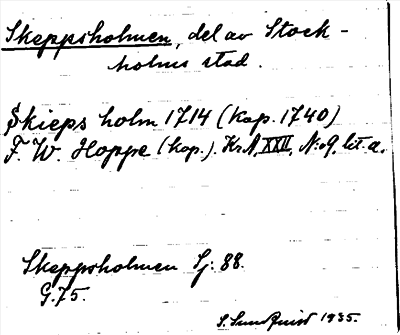 Skeppsholmen, del av Stock-
holms stad.
Skieps holm 1714 (Kop. 1740)
F. W. Hoppe (kop.). Kr.A, XXII, N:o 9, lit. a.
Skeppsholmen Sj: 88.
G. 75.
S. Sundquist 1935.